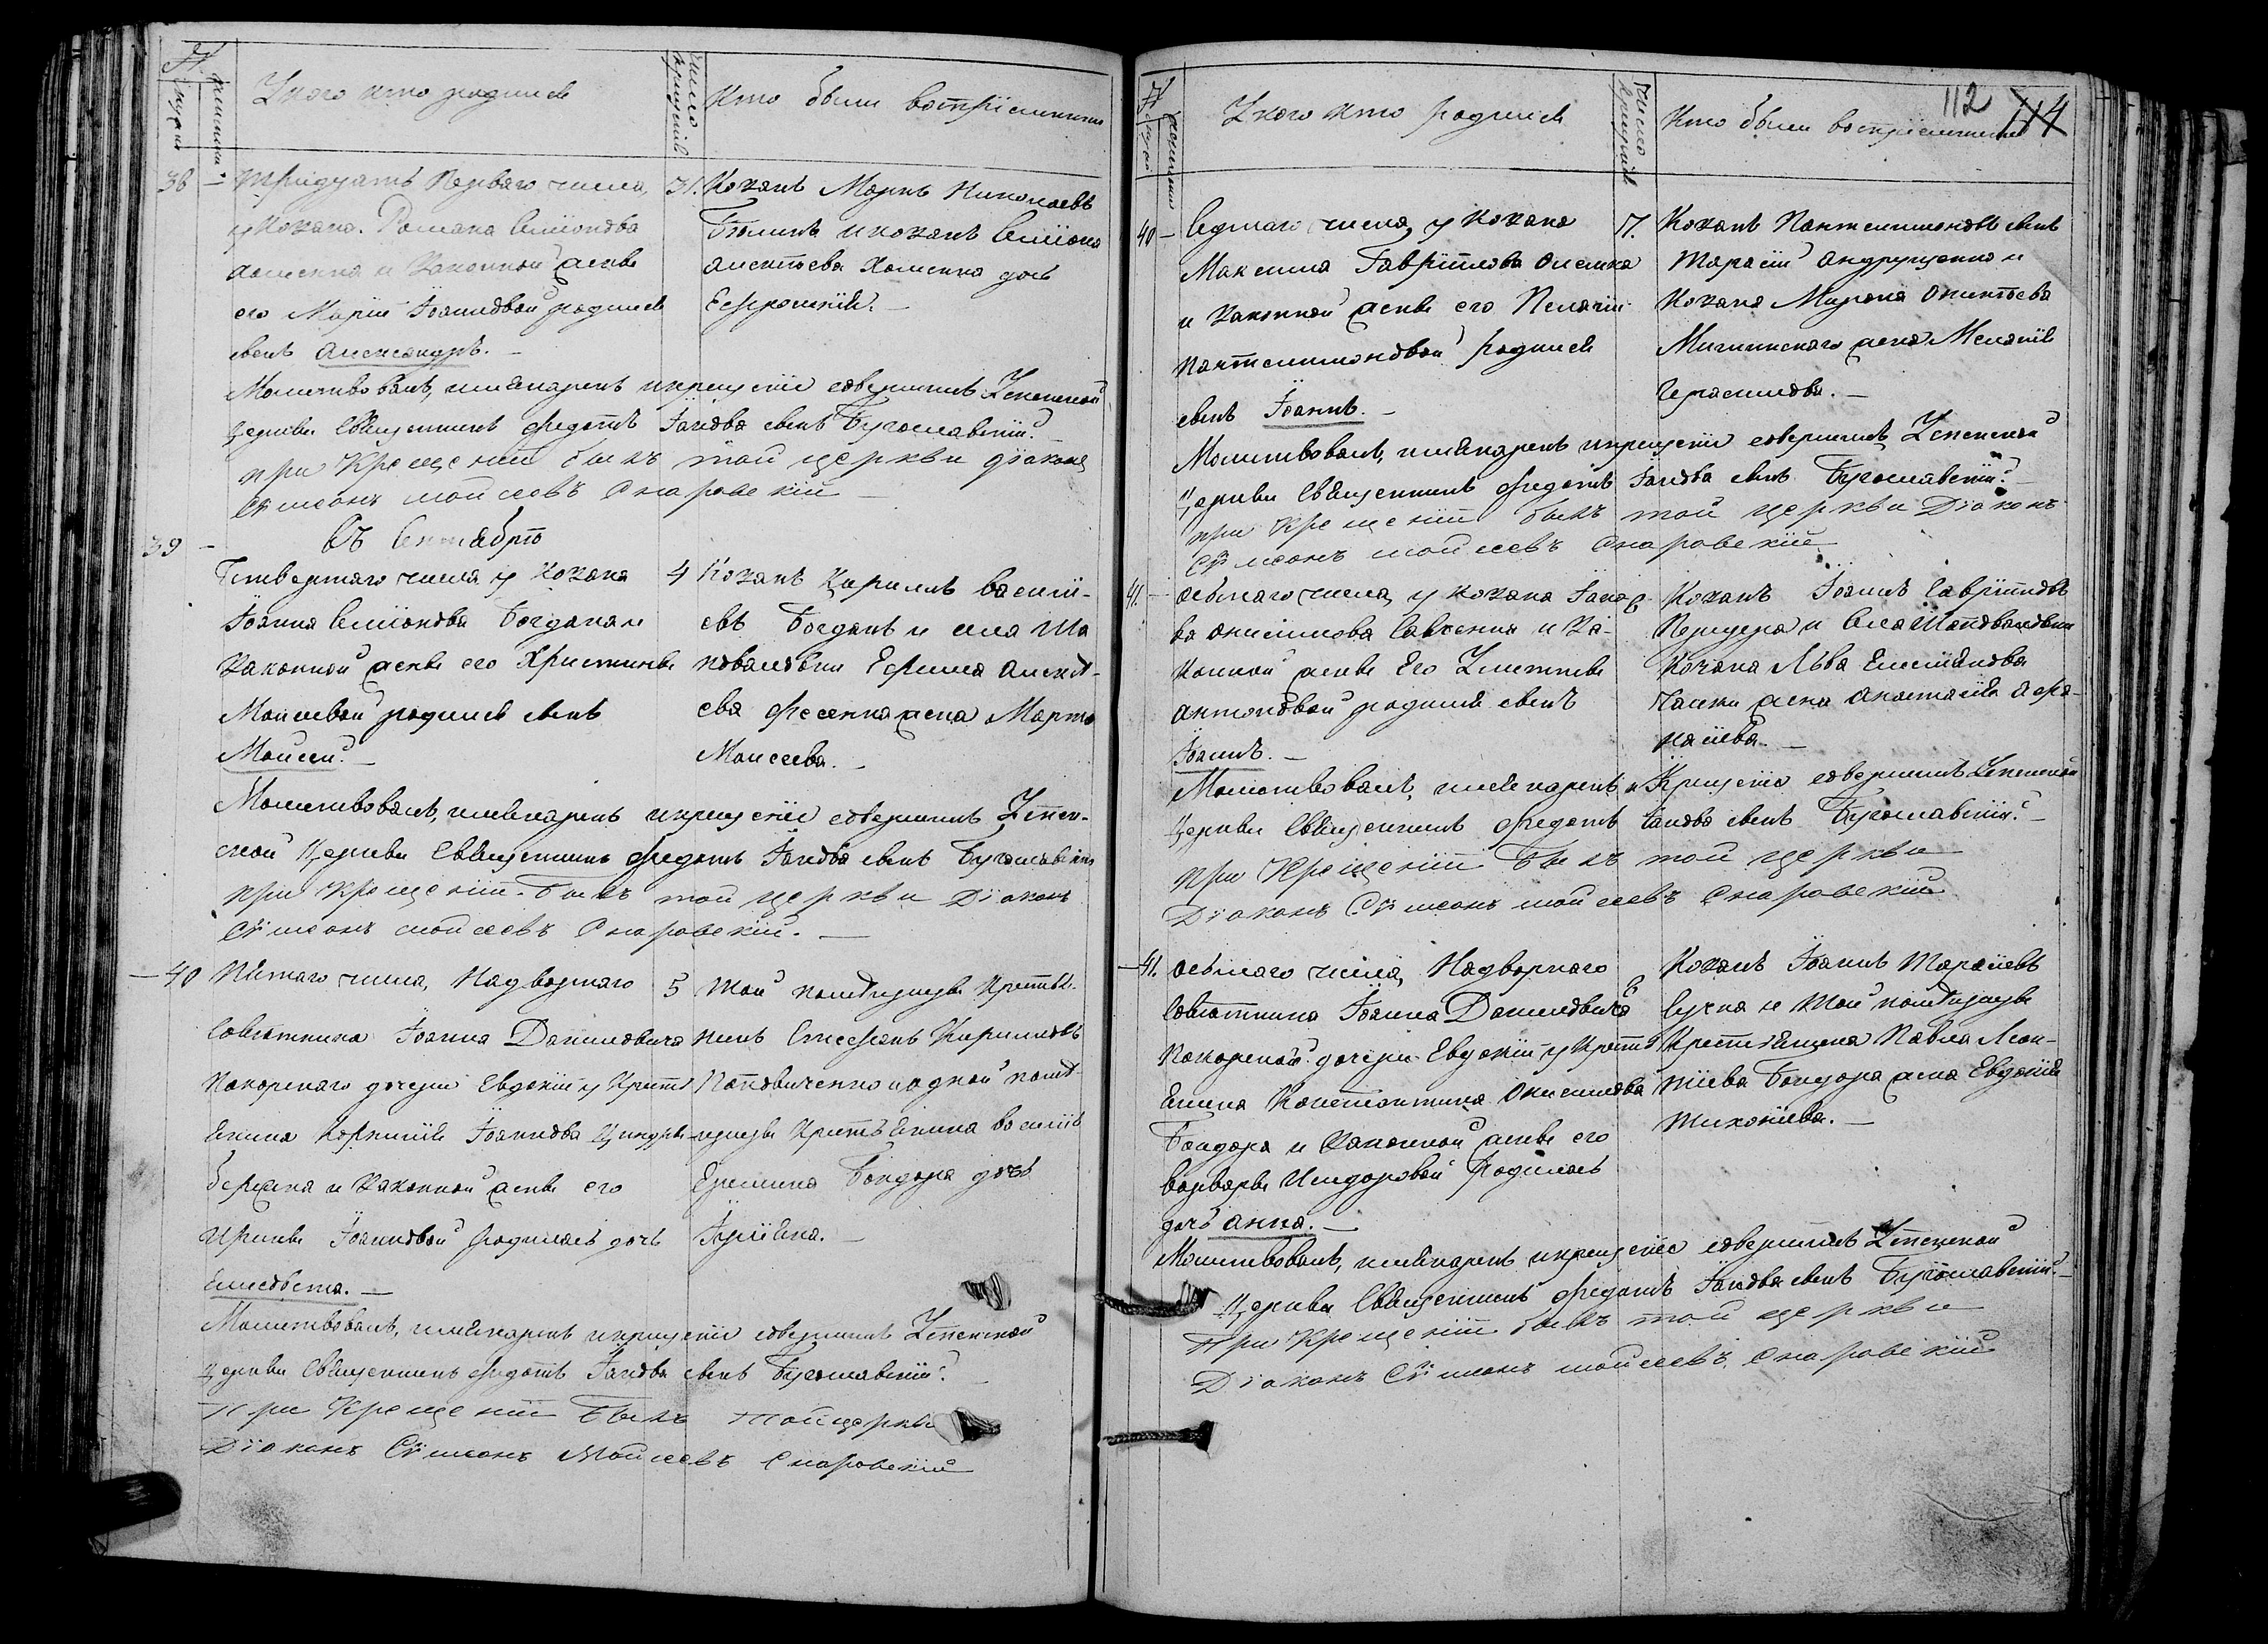 №
мужеск
женска
У кого кто родился
Число крещенія
Кто были воспріемники
38 — тридцать Перваго числа,
у Козака Романа Симіонова
Хоменка и Законной жены
его Маріи Іоанновой родился
сынъ Александръ. —
31. Козакъ Маркъ Николаевъ
и козака Симіона
Алексѣева Хоменка дочь
Ефросинія. —
Молитвовалъ, имянарекъ и крещеніе совершилъ Успенской
Церкви Священникъ Федотъ Іаковъ сынъ Бугославскій.
при Крещеніи былъ той церкви діаконъ
Сѵмеонъ Мойсеевъ Снаровскій —
Въ Сентябрѣ
39 —
Четвертаго числа у Козака
Іоанна Симіонова Богдана и
Законной жены его Христины
Моисеевой родился сынъ
Моисей. —
4 Козакъ Кириллъ Василі-
евъ Богданъ и села Ша
поваловки Ефима Алексѣ-
ева Фесенка жена Марѳа
Моисеева. —
Молитвовалъ, имянарекъ и крещеніе совершилъ Успен-
ской Церкви Священникъ Федотъ Іаковъ сынъ Бугославскій
при Крещеніи былъ той церкви Діаконъ
Сѵмеонъ Мойсеевъ Снаровскій. —
— 40 Пятаго числа, Надворнаго
Совѣтника Іоанна Даниловича
Покорскаго дочери Евдокіи у Крестья
янина Корнилія Іоаннова
и Законной жены его
Ирины Іоанновой родилась дочь
Елисавета. —
5 той помѣщицы Крестья-
нинъ Стефанъ Кириловъ
Поповиченко и одной помѣ-
щицы Крестьянина Василія
Еремина Бондара дочь
Іуліяна. —
Молитвовалъ, имянарекъ и крещеніе совершилъ Успенской
Церкви Священникъ Федотъ Іаковъ сынъ Бугославскій. —
При Крещеніи былъ той церкви
Діаконъ Сѵмеонъ Мойсеевъ Снаровскій
112 114
№
мужеск
женска
У кого кто родился
Число крещенія
Кто были воспріемники
40 — Седмаго числа, у Козака
Максима Гавріилова Олейника
и Законной жены его Пелагіи
Пантелимоновой родился
сынъ Іоаннъ. —
7. Козакъ Пантелимоновъ сынъ
Тарасій Андрущенко и
Козака Мирона Оникіева
жена Меланія
Герасимова. —
Молитвовалъ, имянарекъ и крещеніе совершилъ Успенской
Церкви Священникъ Федотъ Іаковъ сынъ Бугославскій. —
при Крещеніи былъ той церкви Діаконъ
Сѵмеонъ Мойсеевъ Снаровскій
41. — Осьмаго числа, у козака Іако
ва Онисимова Савченка и За-
конной жены Его Улитты
Антоновой родился сынъ
Іоаннъ. —
8 Козакъ Іоаннъ Гавріиловъ
и Села Шаповаловки
Козака Льва Емеліянова
жена Анастасія Афа-
насіева. —
Молитвовалъ, имянарекъ и Крещеніе совершилъ Успенской
Церкви Священникъ Федотъ Іаковъ сынъ Бугославскій. —
при Крещеніи былъ той церкви
Діаконъ Сѵмеонъ Мойсеевъ Снаровскій
— 41. Осьмаго числа, Надворнаго
Совѣтника Іоанна Даниловича
Покорскаго дочери Евдокіи у Крестья
янина Константина Онисимова
Бондара и Законной жены его
Варвары Исидоровой родилась
дочь Анна. —
8 Козакъ Іоаннъ Тарасіевъ
и той помѣщицы
Крестьянина Павла Леон-
тіева Бондара жена Евдокія
Тихоніева. —
Молитвовалъ, имянарекъ и крещеніе совершилъ Успенской
Церкви Священникъ Федотъ Іаковъ сынъ Бугославскій. —
При Крещеніи былъ той церкви
Діаконъ Сѵмеонъ Мойсеевъ Снаровскій